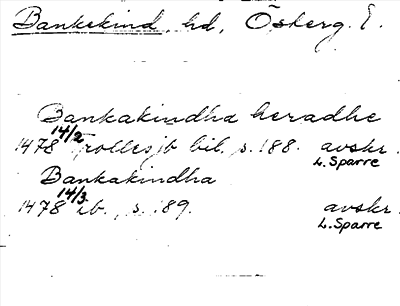 Bankekind, hd, Österg. l.
Bankakindha heradhe
1478 14/2 Trollesjö bil. s. 188. avskr.
L. Sparre
Bankakindha
1478 14/3 ib., s. 189. avskr.
L. Sparre